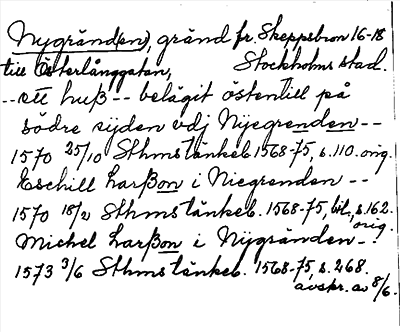 Nygränd(en), gränd fr. Skeppsbron 16-18
till Österlånggatan, Stockholms stad.
-- ett huß -- belägit östentill på
södre sijden vdj Nijegrenden --
1570 25/10 Sthms tänkeb. 1568-75, s. 110. orig.
Eschill Larßon i Niegrenden --
1570 18/2 Sthms tänkeb. 1568-75, bil., s. 162. orig.
Michel Larßon i Nÿgränden --
1573 3/6 Sthms tänkeb. 1568-75, s. 268.
avskr. av 8/6.